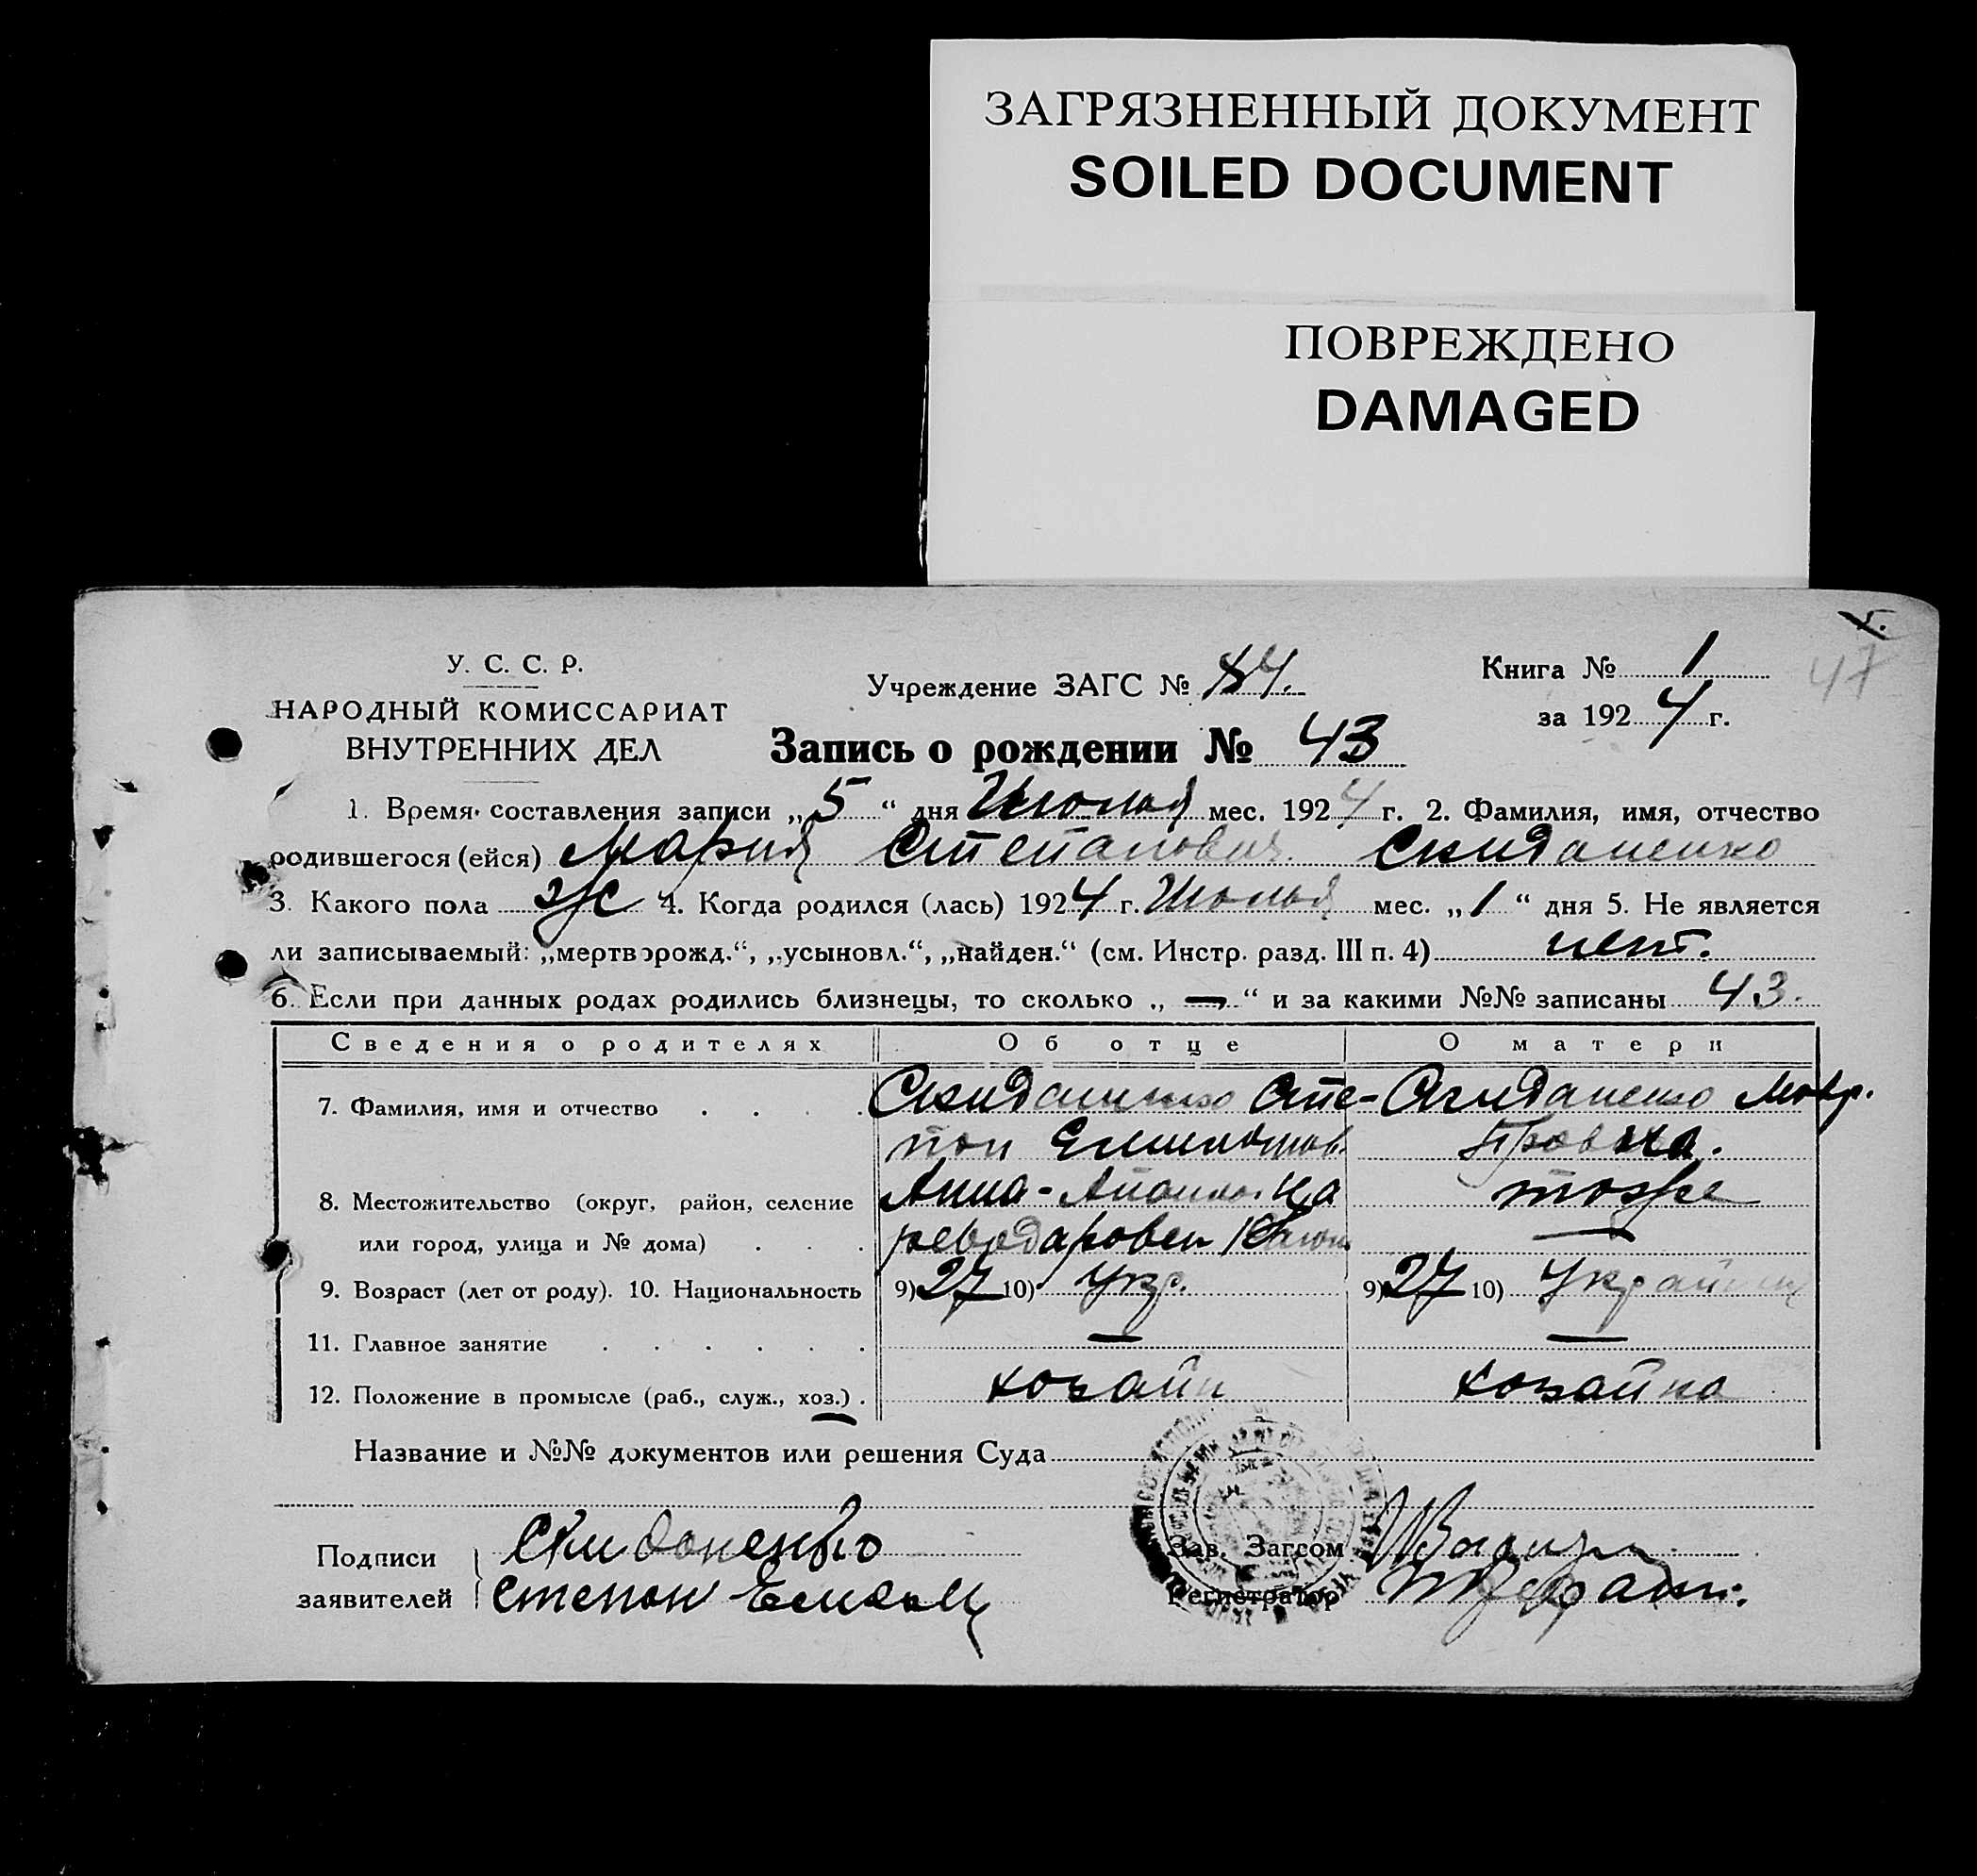 ЗАГРЯЗНЕННЫЙ ДОКУМЕНТ
SOILED DOCUMENT
ПОВРЕЖДЕНО
DAMAGED
47
У. С. С. Р.
НАРОДНЫЙ КОМИССАРИАТ
ВНУТРЕННИХ ДЕЛ
Учреждение ЗАГС № 184.
Книга № 1
за 1924 г.
Запись о рождении № 43
1. Время составления записи „5“ дня Июлья мес. 1924 г. 2. Фамилия, имя, отчество
родившегося (ейся) Мария Степановна Скиданенко
3. Какого пола ж 4. Когда родился (лась) 1924 г. Июлья мес. „1“ дня 5. Не является
ли записываемый: „мертворожд.“, „усыновл.“, „найден.“ (см. Инстр. разд. III п. 4)
6. Если при данных родах родились близнецы, то сколько „—“ и за какими №№ записаны 43.
Сведения о родителях Об отце О матери
7. Фамилия, имя и отчество Скиданенко Сте- Скиданенко
пан
8. Местожительство (округ, район, селение Анна- тоже
или город, улица и № дома) —
9. Возраст (лет от роду). 10. Национальность 9) 27 10) Укр. 9) 27 10)
11. Главное занятие — —
12. Положение в промысле (раб., служ., хоз.) хозаин хозайка
Название и №№ документов или решения Суда
Подписи Скиданенко Зав. Загсом
заявителей Степан Регистратор